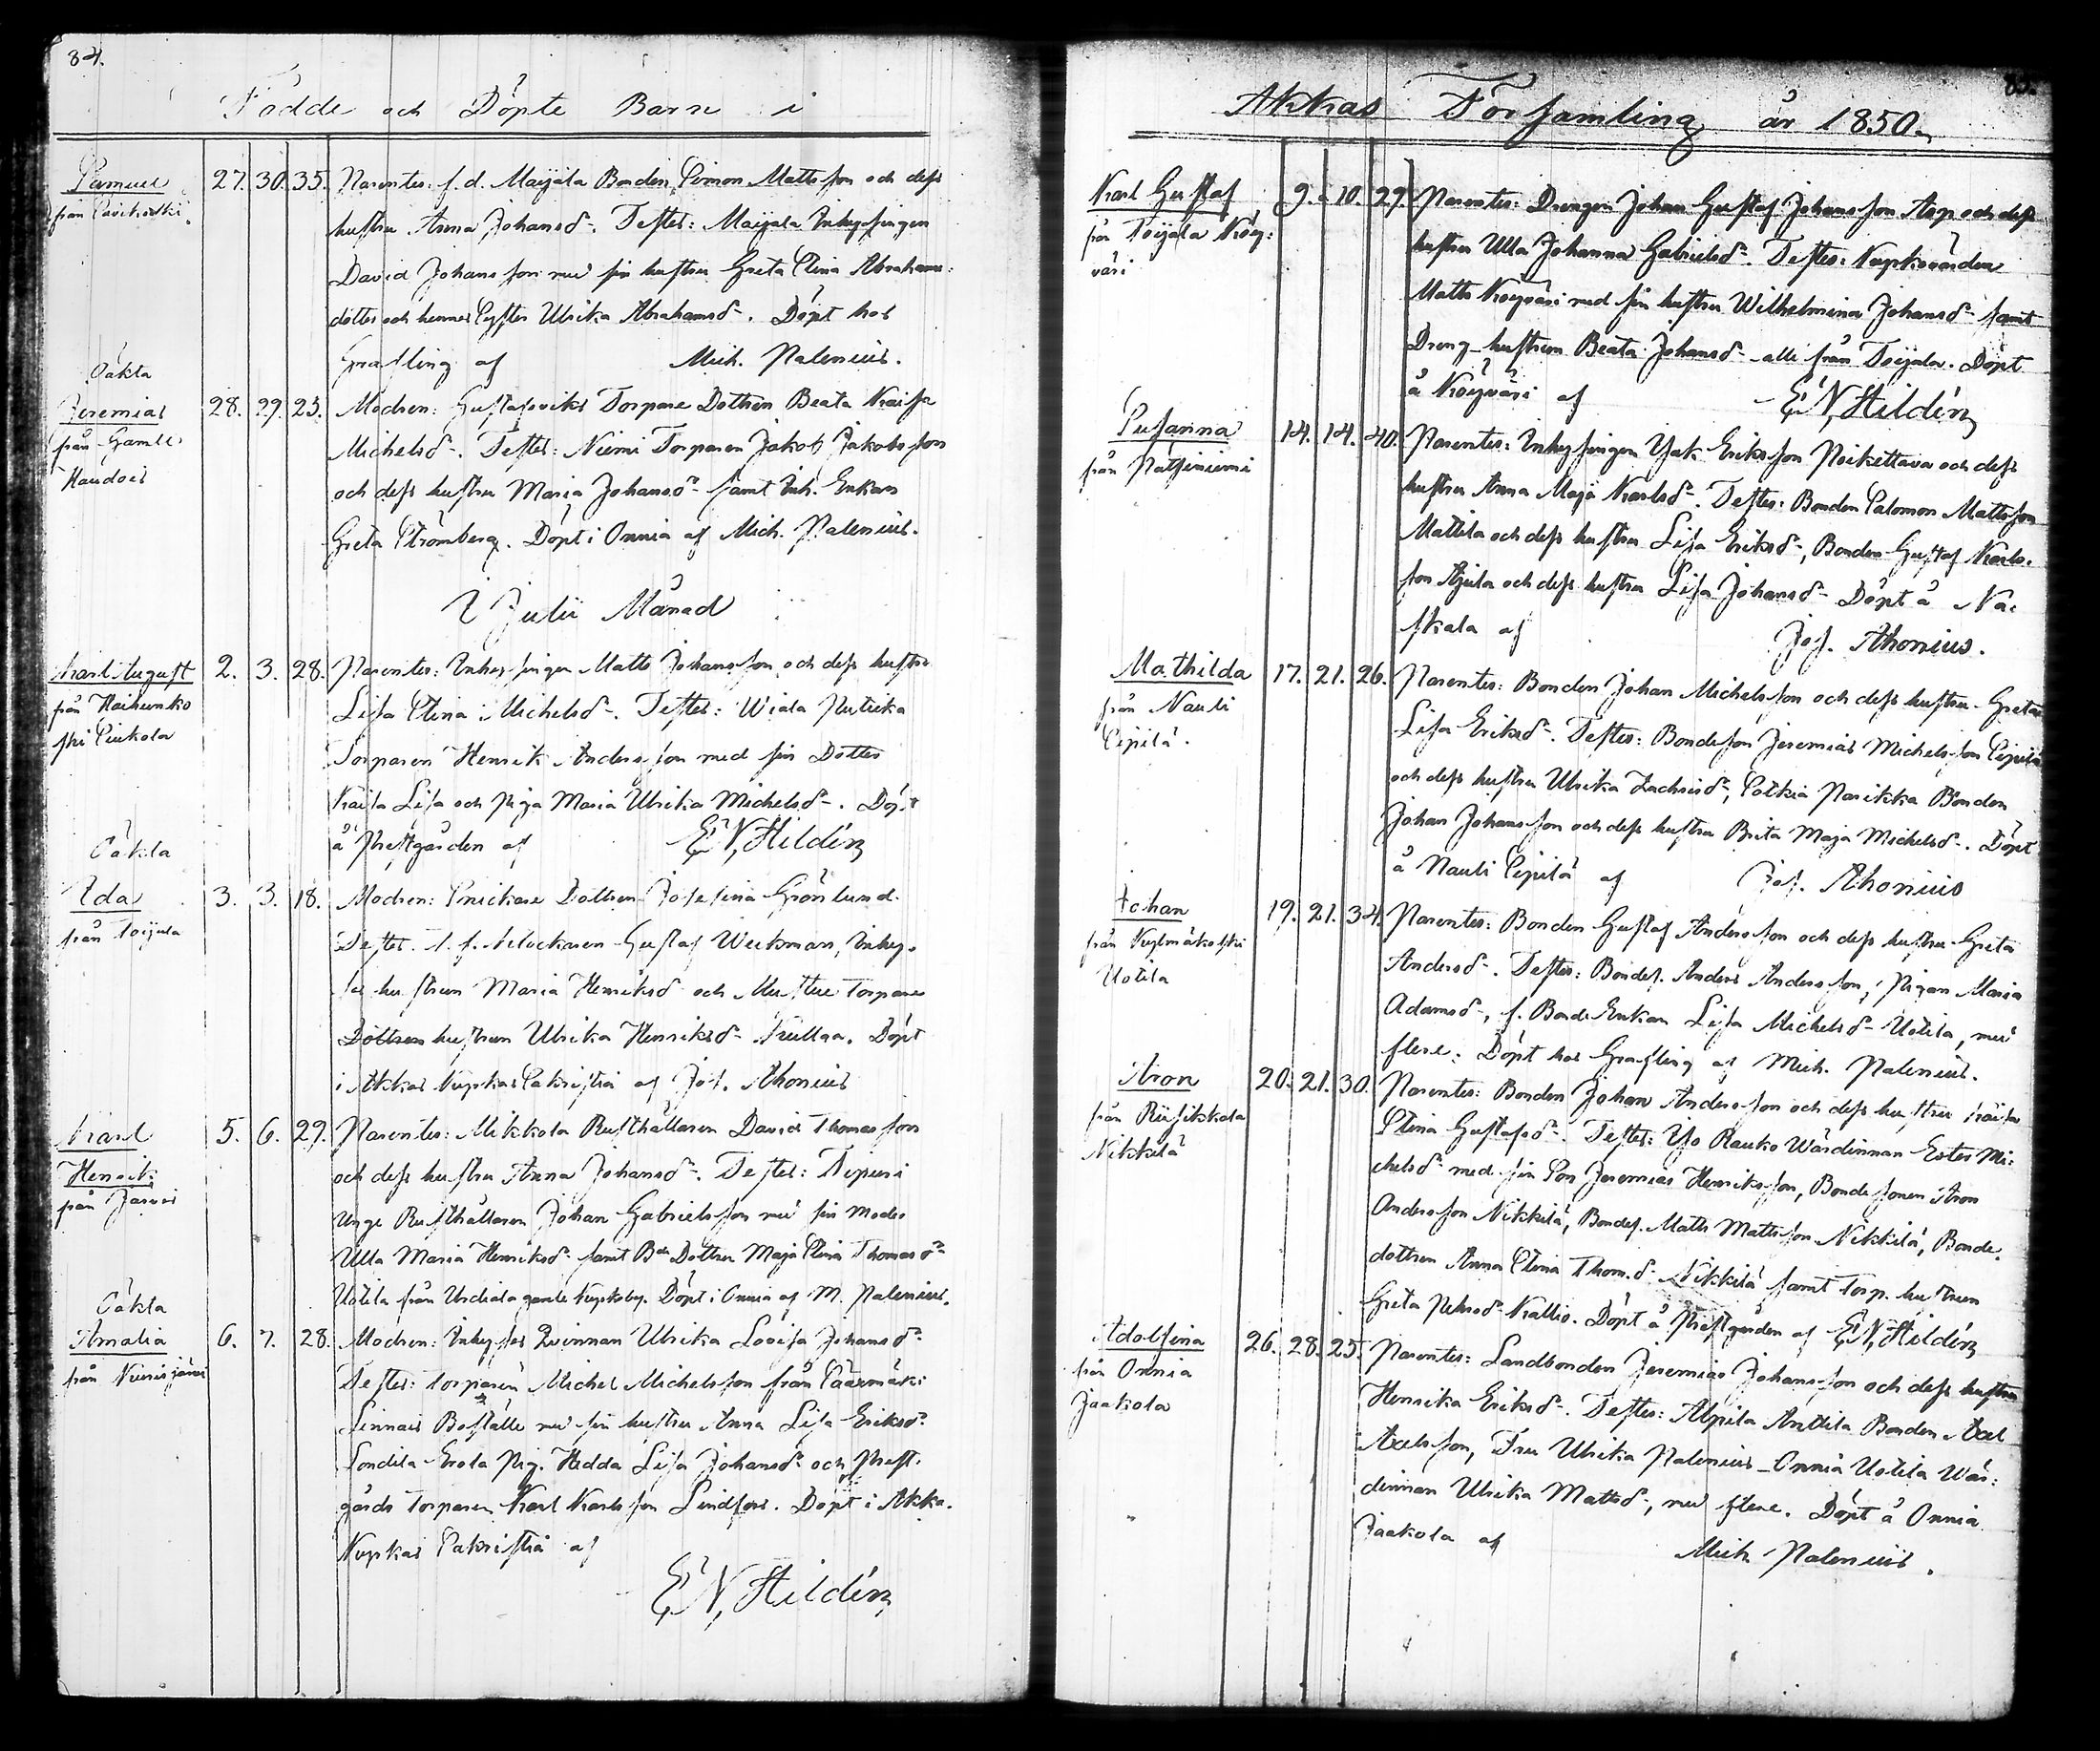 84.
Födde och Döpte Barn i
Samuel
från Savikoski
27. 30. 35.
Parentes: f. d. Maijala Bonden Simon Mattsson och dess
hustru Anna Johansd:. Testes: Maijala Inhysingen
David Johansson med sin hustru Greta Stina Abrahams:
dotter och hennes Syster Ulrika Abrahamsd:. Döpt hos
Grafling af Mich. Palenius.
Oäkta
Jeremias
från Gamle
Haudois
28. 29. 23.
Modren: Gustafsviks Torpare Dottren Beata Kaisa
Michelsd:. Testes: Niemi Torparen Jakob Jakobsson
och dess hustru Maria Johansd: samt Inh. Enkan
Greta Strömberg. Döpt i Onnia af Mich. Palenius.
I Julii Månad
Karl August
från Haihunko
ski Siukola
2. 3. 28.
Parentes: Inhysingen Matts Johansson och dess hustru
Lisa Stina Michelsd:. Testes: Wiala
Torparen Henrik Andersson med sin Dotter
Kaisa Lisa och Piga Maria Ulrika Michelsd:. Döpt
å Prestgården af E N Hildén
Oäkta
Ida
från Toijala
3. 3. 18.
Modren: Snickare Dottren Josefina Grönlund.
Testes: Gustaf Weckman, Inhy-
ses hustrun Maria Henriksd: och Torpare
Dottren hustrun Ulrika Henriksd: Döpt
i Akkas Kyrkas Sakristia af Jos. Ahonius
Karl
Henrik
från Jarvi
5. 6. 29.
Parentes: Mikkola Rusthållaren David Thomasson
och dess hustru Anna Johansd:. Testes:
unge Rusthållaren Johan Gabrielsson med sin Moder
Ulla Maria Henriksd: samt Bde Dottren Maja Stina Thomasd:
Uotila från Urdiala gamle Kyrkoby. Döpt i Onnia af M. Palenius.
Oäkta
Amalia
från Kurisjärvi
6. 7. 28.
Modren: Inhyses Qvinnan Ulrika Lovisa Johansd:
Testes: Torparen Michel Michelsson från Säärmäki
Linnais Boställe med sin hustru Anna Lisa Eriksd:
Sondila Erola Pig. Hedda Lisa Johansd: och Prest-
gårds Torparen Karl Karlsson Lindfors. Döpt i Akka.
Kyrkas Sakristia af
E N Hildén
85.
Akkas Församling år 1850.
Karl Gustaf
från Toijala Köy:
väri
9. 10. 29.
Parentes: Drengen Johan Gustaf Johansson Arp och dess
hustru Ulla Johanna Gabrielsd:. Testes: Kyrkovärden
Matts Köyväri med sin hustru Wilhelmina Johansd: samt
Dreng-hustrun Beata Johansd: alle från Toijala. Döpt
å Köyväri af E N Hildén
Susanna
från Patsiniemi
14. 14. 40.
Parentes: Inhysingen Isak Eriksson Poikettava och dess
hustru Anna Maja Karlsd:. Testes: Bonden Salomon Mattsson
Mattila och dess hustru Lisa Eriksd:, Bonden Gustaf Karls-
son Äijala och dess hustru Lisa Johansd: Döpt å Na-
skala af Jos. Ahonius.
Mathilda
från Nauli
Sipilä.
17. 21. 26.
Parentes: Bonden Johan Michelsson och dess hustru Greta
Lisa Eriksd:. Testes: Bondeson Jeremias Michelsson Sipilä
och dess hustru Ulrika Zachrisd:, Sotkia Parikka Bonden
Johan Johansson och dess hustru Brita Maja Michelsd:. Döpt
å Nauli Sipilä af Jos. Ahonius
Johan
från Kylmäkoski
Uotila
19. 21. 34.
Parentes: Bonden Gustaf Andersson och dess hustru Greta
Andersd:. Testes: Bondes. Anders Andersson, Pigan Maria
Adamsd:, f. Bonde Enkan Lisa Michelsd: Uotila, med
flere. Döpt hos Grafling af Mich. Palenius.
Aron
från Riisikkala
Nikkilä
20. 21. 30.
Parentes: Bonden Johan Andersson och dess hustru Kaisa
Stina Gustafsd:. Testes: Yso Rauko Wärdinnan Ester Mi:
chelsd: med sin Son Jeremias Henriksson, Bonde sonen Aron
Andersson Nikkilä, Bondes. Matts Mattsson Nikkilä, Bonde-
dottren Anna Stina Thom.d: Nikkilä samt Torp. hustrun
Greta Kallio. Döpt å Prestgården af E N Hildén
Adolfina
från Onnia
Jaakola
26. 28. 25.
Parentes: Landbonden Jeremias Johansson och dess hustru
Henrika Eriksd:. Testes: Alpila Anttila Bonden Axel
Axelsson, Fru Ulrika Palenius, Onnia Uotila Wär:
dinnan Ulrika Mattsd:, med flere. Döpt å Onnia
Jaakola af Mich Palenius.